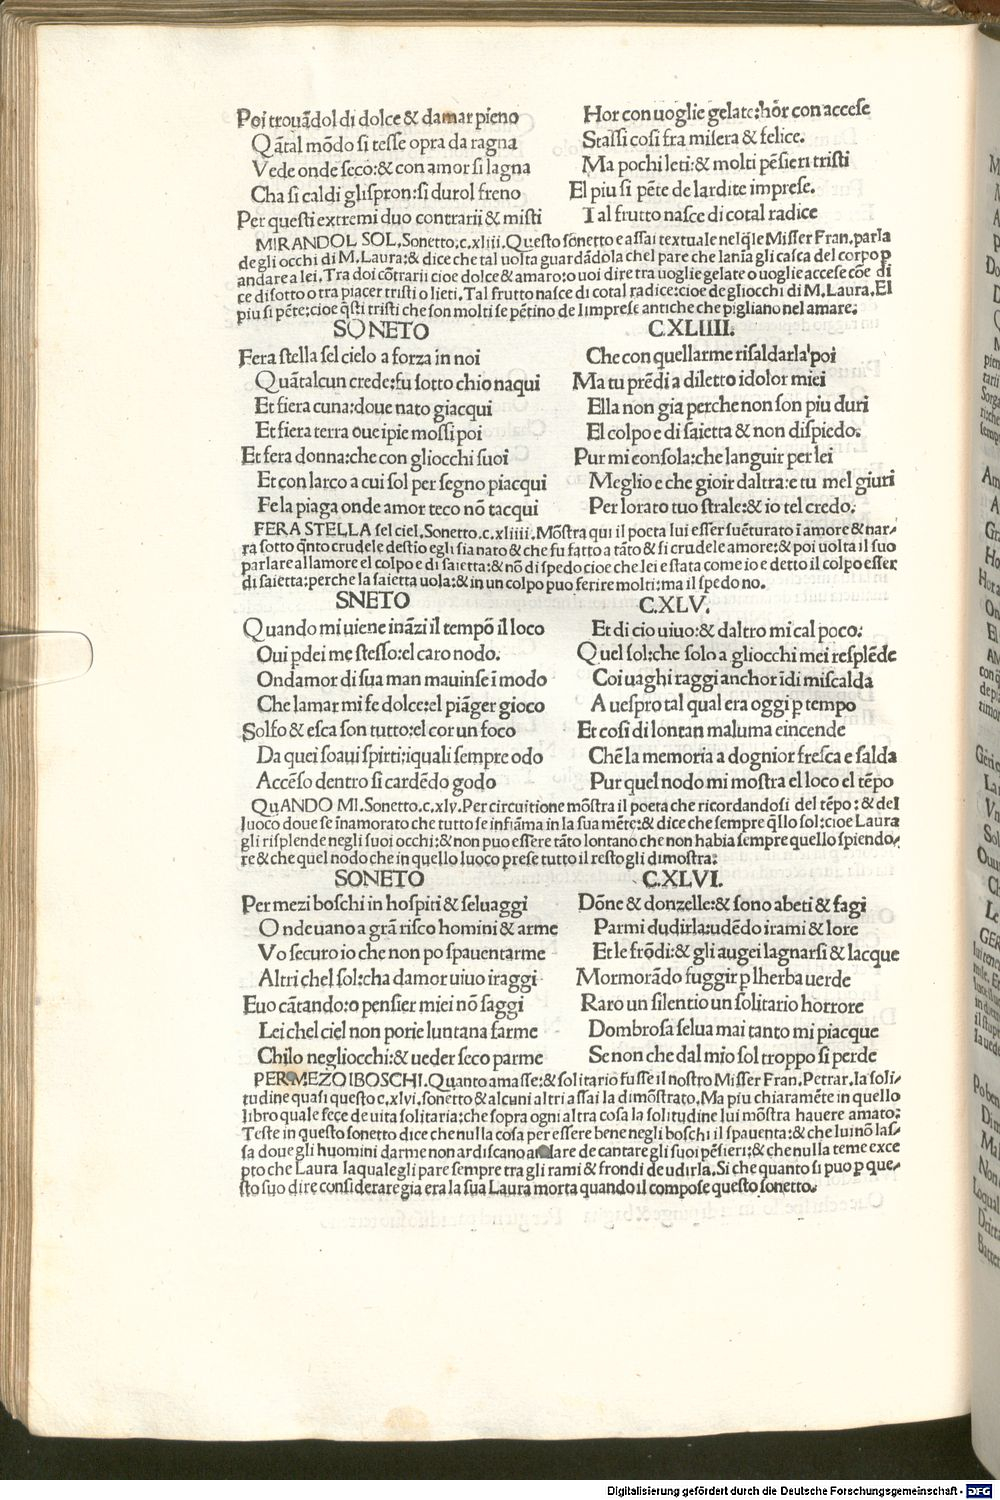 Poi trouãdol di dolce & damar pieno
Quãtal mõdo si tesse opra da ragna
Vede onde seco:& con amor si lagna
Cha si caldi glispron:si durol freno
Per questi extremi duo contrarii & misti
Hor con uoglie gelate:hor con accese
Stassi cosi fra misera & felice.
Ma pochi leti:& molti pẽsieri tristi
El piu si pẽte de lardite imprese.
Tal frutto nasce di cotal radice
MIRANDOL SOL.Sonetto.c.xliii.Questo sõnetto e assai textuale nelq̃le Misser Fran.parla
de gli occhi di M.Laura:& dice che tal uolta guardãdola chel pare che lania gli casca del corpo p
andare a lei.Tra doi cõtrarii cioe dolce & amaro:o uoi dire tra uoglie gelato o uoglie accese cõe di
ce di sotto o tra piacer tristi o lieti.Tal frutto nasce di cotal radice:cioe de gliocchi di M.Laura.El
piu si pẽte:cioe q̃sti tristi che son molti se pẽtino de limprese antiche che pigliano nel amare:
SONETO CXLIIII.
Fera stella sel cielo a forza in noi
Quãtalcun crede:fu sotto chio naqui
Et fiera cuna:doue nato giacqui
Et fiera terra oue ipie mossi poi
Et fera donna:che con gliocchi suoi
Et con larco a cui sol per segno piacqui
Fe la piaga onde amor teco nõ tacqui
Che con quellarme risaldarla poi
Ma tu prẽdi a diletto idolor miei
Ella non gia perche non son piu duri
El colpo e di saietta & non dispiedo.
Pur mi consola:che languir per lei
Meglio e che gioir daltra:e tu mel giuri
Per lorato tuo strale:& io tel credo.
FERA STELLA sel ciel.Sonetto.c.xliiii.Mõstra qui il poeta lui esser suẽturato ĩ amore & nar-
ra sotto q̃nto crudele destio egli sia nato & che fu fatto a tãto & si crudele amore:& poi uolta il suo
parlare allamore el colpo e di saietta:& nõ di spedo cioe che lei e stata come io e detto il colpo esser
di saietta:perche la saietta uola:& in un colpo puo ferire molti:ma il spedo no.
SNETO C.XLV.
Quando mi uiene inãzi il tempõ il loco
Oui pdei me stesso:el caro nodo.
Ondamor di sua man mauinse ĩ modo
Che lamar mi fe dolce:el piãger gioco
Solfo & esca son tutto:el cor un foco
Da quei soaui spirti:iquali sempre odo
Accẽso dentro si cardẽdo godo
Et di cio uiuo:& daltro mi cal poco:
Quel sol:che solo a gliocchi mei resplẽde
Coi uaghi raggi anchor ĩdi miscalda
A uespro tal qual era oggi p tempo
Et cosi di lontan maluma eincende
Chẽ la memoria a dognior fresca e salda
Pur quel nodo mi mostra el loco el tẽpo
QuANDO MI.Sonetto.c.xlv.Per circuitione mõstra il poeta che ricordandosi del tẽpo:& del
luoco doue se ĩnamorato che tutto se infiãma in la sua mẽte:& dice che sempre q̃llo sol:cioe Laura
gli risplende negli suoi occhi:& non puo essere tãto lontano che non habia sempre quello spiendo-
re & che quel nodo che in quello luoco prese tutto il resto gli dimostra:
SONETO C.XLVI.
Per mezi boschi in hospiti & seluaggi
Onde uano a grã risco homini & arme
Vo securo io che non po spauentarme
Altri chel sol:cha damor uiuo iraggi
Euo cãtando:o pensier miei nõ saggi
Lei chel ciel non porie luntana farme
Chilo negliocchi:& ueder seco parme
Dõne & donzelle:& sono abeti & fagi
Parmi dudirla:udẽdo irami & lore
Et le frõdi:& gli augei lagnarsi & lacque
Mormorãdo fuggir p lherba uerde
Raro un silentio un solitario horrore
Dombrosa selua mai tanto mi piacque
Se non che dal mio sol troppo si perde
PER MEZO I BOSCHI.Quanto amasse:& solitario fusse il nostro Misser Fran.Petrar.la soli-
tudine quasi questo c.xlvi.sonetto & alcuni altri assai la dimõstrato.Ma piu chiaramẽte in quello
libro quale fece de uita solitaria:che sopra ogni altra cosa la solitudine lui mõstra hauere amato:
Teste in questo sonetto dice che nulla cosa per essere bene negli boschi il spauenta:& che lui nõ las-
sa doue gli huomini darme non ardiscano andare de cantare gli suoi pẽsieri:& che nulla teme exce
pto che Laura laquale gli pare sempre tra gli rami & frondi de udirla.Si che quanto si puo p que-
sto suo dire considerare gia era la sua Laura morta quando il compose questo sonetto.
Digitalisierung gefördert durch die Deutsche Forschungsgemeinschaft - DFG